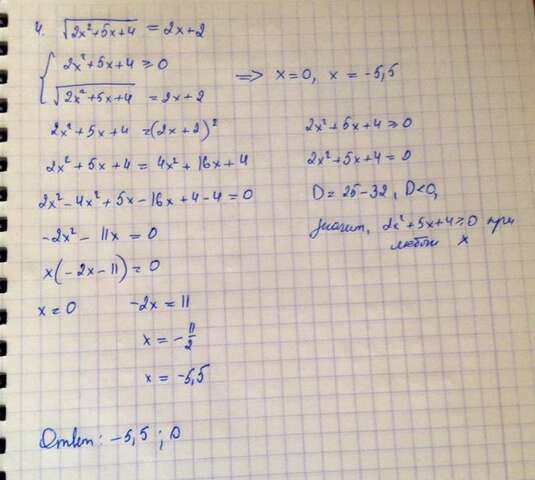 4. √(2x²+5x+4) = 2x+2
{ 2x²+5x+4 ≥ 0
√(2x²+5x+4) = 2x+2
=> x=0, x = -5,5
2x²+5x+4 = (2x+2)²
2x²+5x+4 = 4x²+16x+4
2x²-4x²+5x-16x+4-4=0
-2x²-11x = 0
x(-2x-11) = 0
x=0 -2x = 11
x = -11/2
x = -5,5
2x²+5x+4 ≥ 0
2x²+5x+4 = 0
D = 25-32, D<0,
значит, 2x²+5x+4 ≥ 0 при
любом x
Ответ: -5,5 ; 0